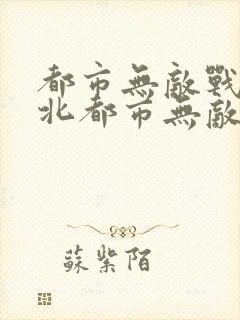 都市無敵戰
北都市無敵
蘇紫陌